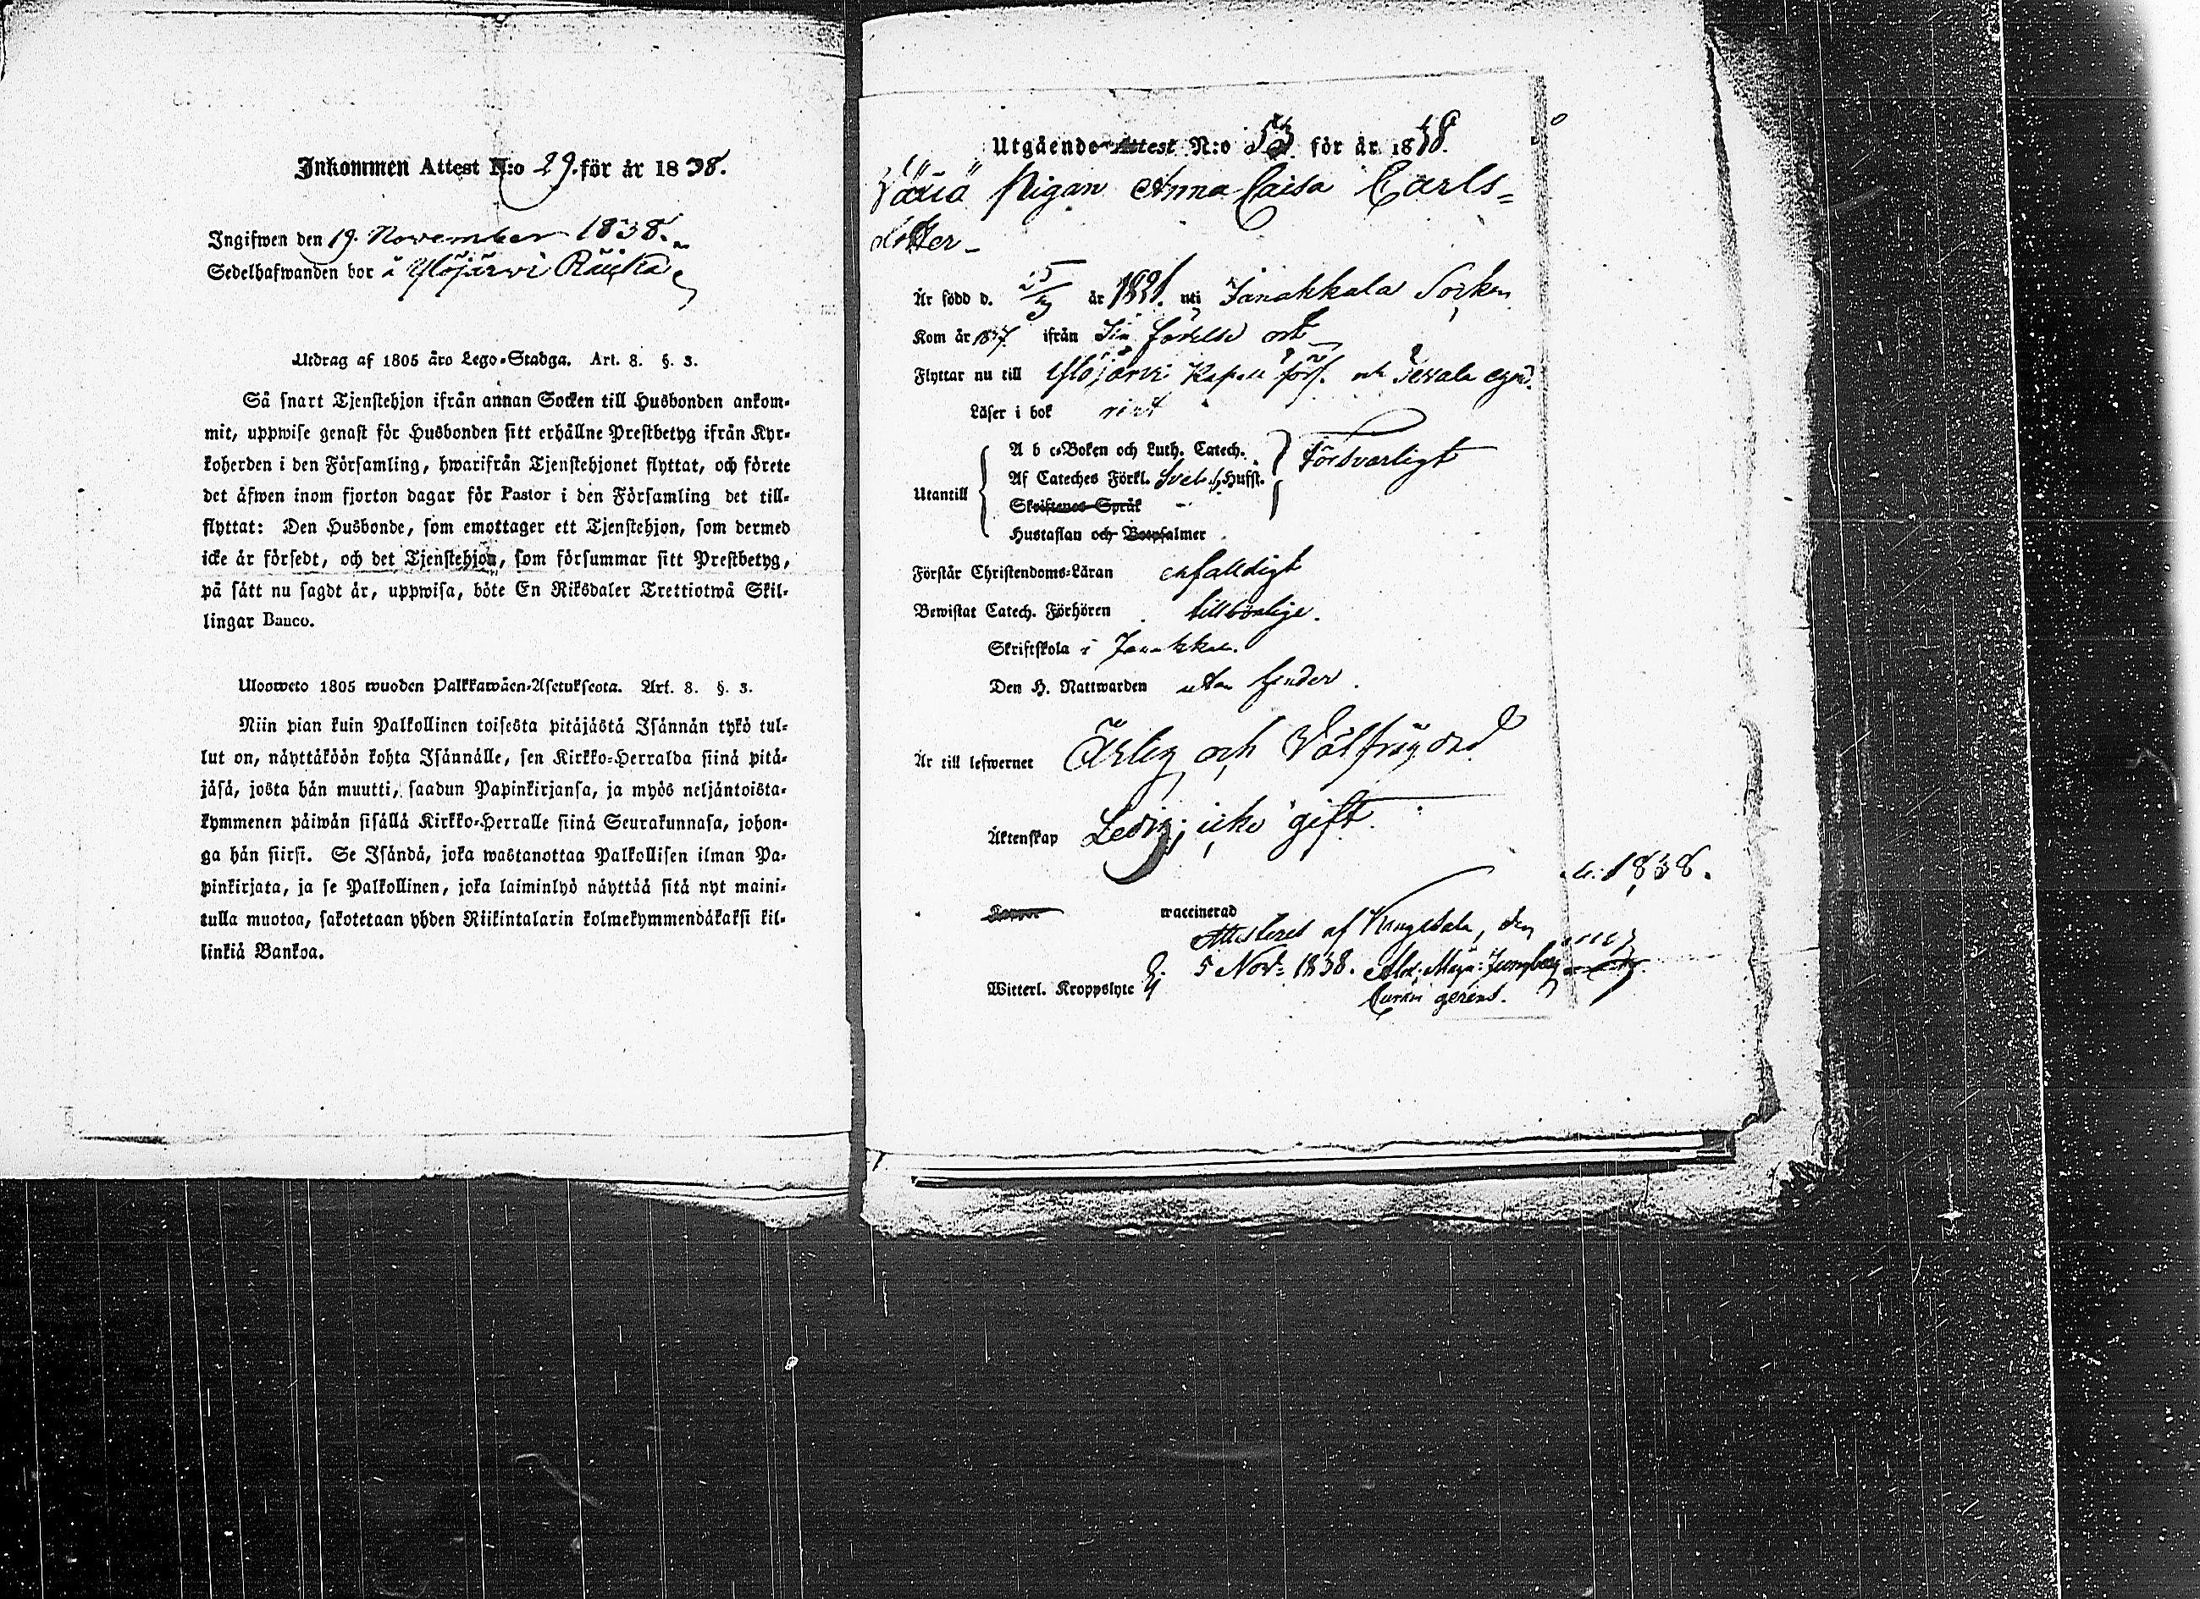 Inkommen Attest N:o 29. för år 1838.
Ingifwen den 19. November 1838.
Sedelhafwanden bor å Ylöjärvi Räikä
Utdrag af 1805 års Lego-Stadga. Art. 8. §. 3.
Så snart Tjenstehjon ifrån annan Socken till Husbonden ankom-
mit, uppwise genast för Husbonden sitt erhållne Prestbetyg ifrån Kyr-
koherden i den Församling, hwarifrån Tjenstehjonet flyttat, och förete
det äfwen inom fjorton dagar för Pastor i den Församling det till-
flyttat: Den Husbonde, som emottager ett Tjenstehjon, som dermed
icke är försedt, och det Tjenstehjon, som försummar sitt Prestbetyg,
på sätt nu sagdt är, uppwisa, böte En Riksdaler Trettiotwå Skil-
lingar Banco.
Uloosweto 1805 wuoden Palkkawäen-Asetuksesta. Art. 8. §. 3.
Niin pian kuin Palkollinen toisesta pitäjästä Isännän tykö tul-
lut on, näyttäköön kohta Isännälle, sen Kirkko-Herralda siinä pitä-
jäsä, josta hän muutti, saadun Papinkirjansa, ja myös neljäntoista-
kymmenen päiwän sisällä Kirkko-Herralle siinä Seurakunnasa, johon-
ga hän siirsi. Se Isändä, joka wastanottaa Palkollisen ilman Pa-
pinkirjata, ja se Palkollinen, joka laiminlyö näyttää sitä nyt maini-
tulla muotoa, sakotetaan yhden Riikintalarin kolmekymmendäkaksi kil-
linkiä Bankoa.
Utgående Attest N:o 53 för år 1838.
Pigan Anna Caisa Carls=
dotter
Är född d. 25/3 år 1821. uti Janakkala Socken
Kom år 1837 ifrån Sin födelse ort
Flyttar nu till Ylöjärvi Kapell förs. och
Läser i bok rent
Utantill
A b c-Boken och Luth. Catech.
Af Cateches Förkl. Sveb. Hufst.
försvarligt
Skriftenes Språk
Hustaflan och Botpsalmer
Förstår Christendoms-Läran enfalldigt
Bewistat Catech. Förhören tillbörlige.
Skriftskola i Janakkala
Den H. Nattwarden utan hinder.
Är till lefwernet Ärlig och Välfräjdad
Äktenskap Ledig; icke gift.
1838.
waccinerad
Attesteras af Kangasala, den
5 Nov: 1838. Alex: Magn: Ljungberg
Witterl. Kroppslyte
Curam gerens.